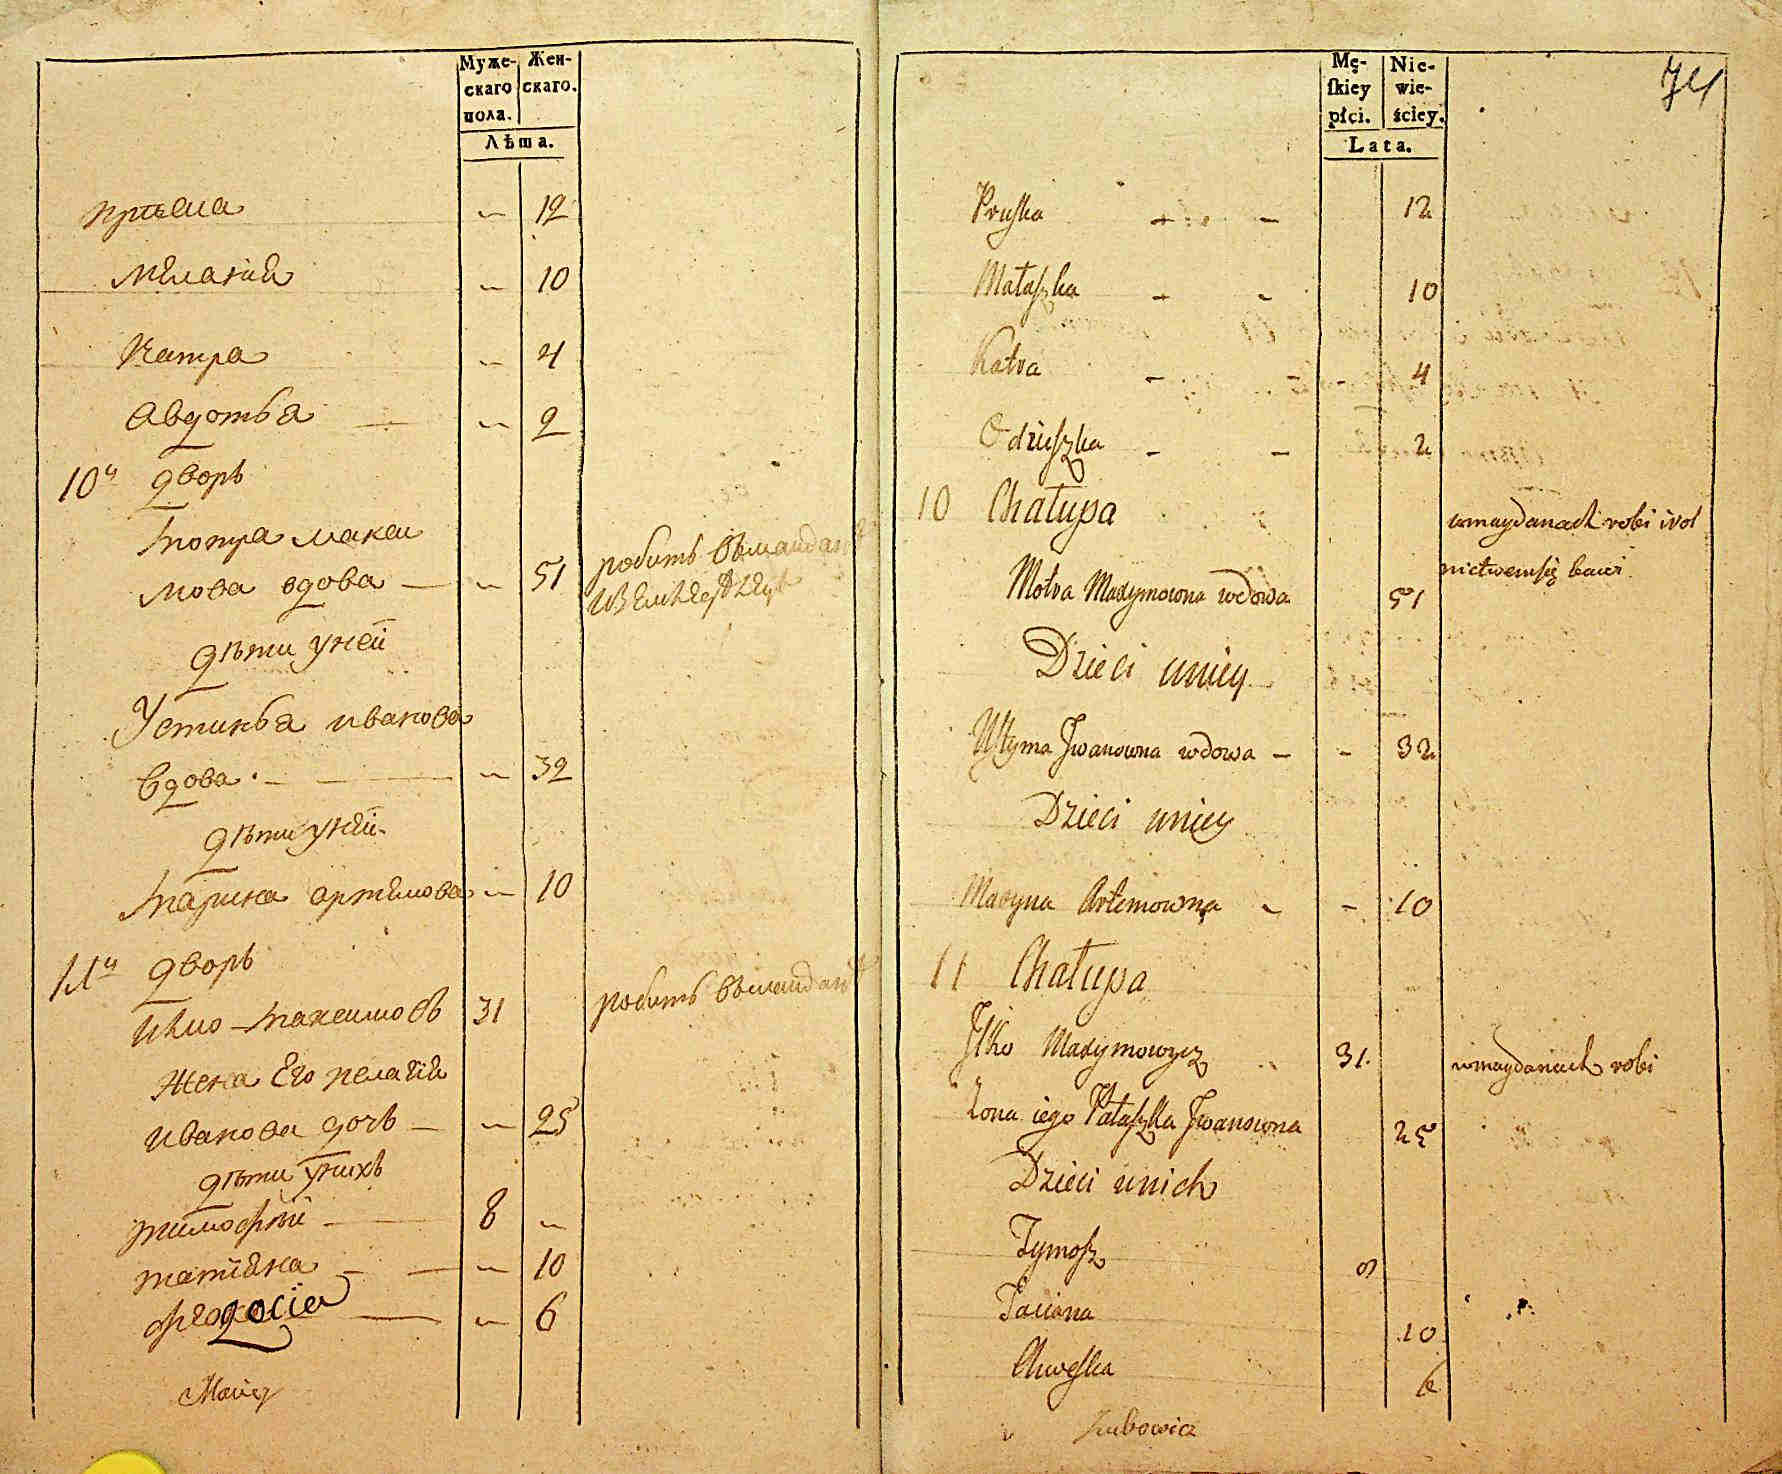 Муже-
скаго
пола.
Жен-
скаго.
Лѣта.
Присма — 12
Меланиа — 10
Катра — 4
Авдотьа — 2
10й дворъ
Мотра макси
мова вдова — 51
робитъ въмайданѣ
дѣти уней
Устиньа иванова
вдова — 32
дѣти уней
Марина артемова — 10
11й дворъ
Илко Максимовъ 31
робитъ въмайданѣ
жена Его пелагиа
иванова дочь — 25
дѣти унихъ
тимофѣй 8 —
татиана — 10
феодосіа — 6
Mę-
skiey
płci.
Nie-
wie-
ściey.
Lata.
74
Pruska 12
Małaszka 10
Katra 4
Odziuszka 2
10 Chałupa
wmaydanach robi i wol
nictwemsię bawi
Motra Maxymowna wdowa 51
Dzieci uniey
Ustyma Jwanowna wdowa 32
Dzieci uniey
Maryna Artemowna 10
11 Chałupa
Jlko Maxymowicz 31.
wmaydanach robi
Żona iego Pałaszka Jwanowna 25
Dzieci unich
Tymosz 8
Taciana 10
Chweska 6